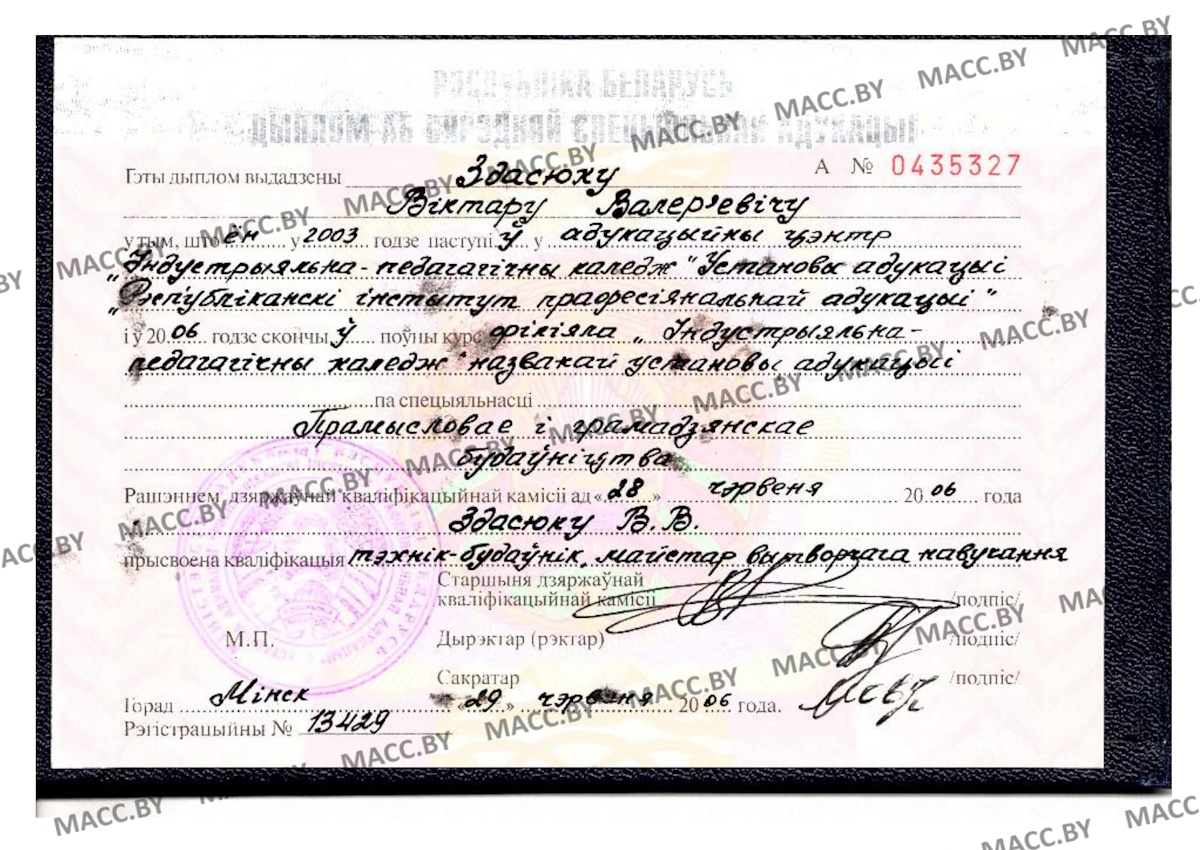 РЭСПУБЛІКА БЕЛАРУСЬ
ДЫПЛОМ АБ СЯРЭДНЯЙ СПЕЦЫЯЛЬНАЙ АДУКАЦЫІ
А № 0435327
Гэты дыплом выдадзены Здасюку
Віктару Валер'евічу
у тым, што ён у 2003 годзе паступіў у адукацыйны цэнтр
"Індустрыяльна-педагагічны каледж" Установы адукацыі
"Рэспубліканскі інстытут прафесіянальнай адукацыі"
і ў 2006 годзе скончыў поўны курс філіяла „Індустрыяльна-
педагагічны каледж" названай установы адукацыі
па спецыяльнасці
Прамысловае і грамадзянскае
будаўніцтва
Рашэннем дзяржаўнай кваліфікацыйнай камісіі ад «28» чэрвеня 2006 года
Здасюку В.В.
прысвоена кваліфікацыя тэхнік-будаўнік, майстар вытворчага навучання
Старшыня дзяржаўнай
кваліфікацыйнай камісіі /подпіс/
М.П. Дырэктар (рэктар) /подпіс/
Сакратар /подпіс/
Горад Мінск «29» чэрвеня 2006 года.
Рэгістрацыйны № 13429
MACC.BY